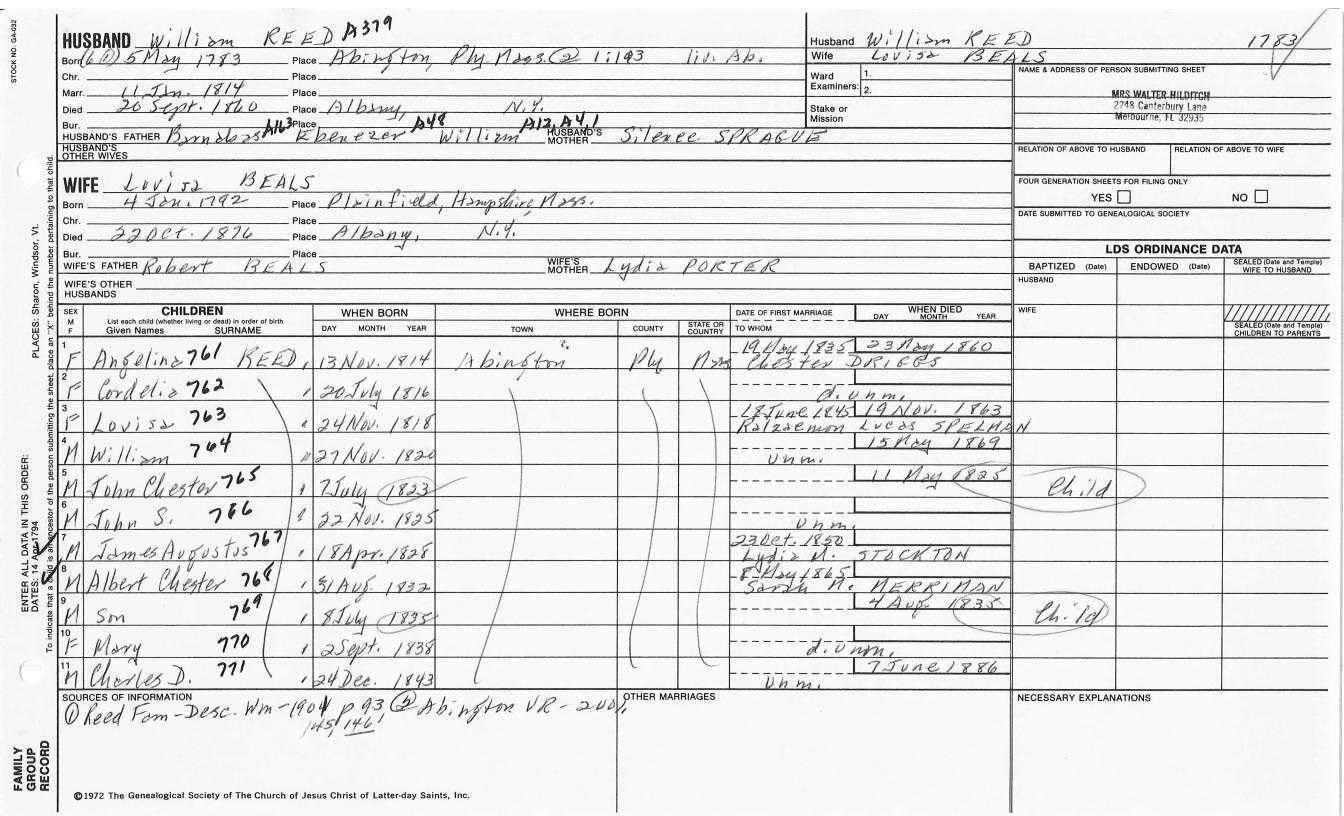 STOCK NO. GA-032
HUSBAND William REED A379
Born (6 ①) 5 May 1783 Place Abington, Ply. Mass. ② 1:193 liv. Ab.
Chr. Place
Marr. 11 Jan. 1814 Place
Died 20 Sept. 1860 Place Albany, N.Y.
Bur. Place
HUSBAND'S FATHER Barnabas A163 Ebenezer A48 William A12, A4,1 HUSBAND'S MOTHER Silence SPRAGUE
HUSBAND'S OTHER WIVES
WIFE Lovisa BEALS
Born 4 Jan. 1792 Place Plainfield, Hampshire, Mass.
Chr. Place
Died 22 Oct. 1876 Place Albany, N.Y.
Bur. Place
WIFE'S FATHER Robert BEALS WIFE'S MOTHER Lydia PORTER
WIFE'S OTHER HUSBANDS
Husband William REED 1783
Wife Lovisa BEALS
Ward Examiners: 1. 2.
Stake or Mission
NAME & ADDRESS OF PERSON SUBMITTING SHEET
MRS WALTER HILDITCH
2248 Canterbury Lane
Melbourne, FL 32935
RELATION OF ABOVE TO HUSBAND RELATION OF ABOVE TO WIFE
FOUR GENERATION SHEETS FOR FILING ONLY
YES NO
DATE SUBMITTED TO GENEALOGICAL SOCIETY
LDS ORDINANCE DATA
BAPTIZED (Date) ENDOWED (Date) SEALED (Date and Temple) WIFE TO HUSBAND
HUSBAND
WIFE
SEALED (Date and Temple) CHILDREN TO PARENTS
SEX M F CHILDREN WHEN BORN WHERE BORN DATE OF FIRST MARRIAGE WHEN DIED
List each child (whether living or dead) in order of birth
Given Names SURNAME DAY MONTH YEAR TOWN COUNTY STATE OR COUNTRY TO WHOM DAY MONTH YEAR
1 F Angelina 761 REED 13 Nov. 1814 Abington Ply Mass 19 May 1835 23 May 1860
Chester DRIGGS
2 F Cordelia 762 20 July 1816 d. unm.
3 F Lovisa 763 24 Nov. 1818 18 June 1845 19 Nov. 1863
Ralzaemon Lucas SPELMAN
4 M William 764 27 Nov. 1820 unm. 15 May 1869
5 M John Chester 765 7 July 1823 11 May 1825 Child
6 M John S. 766 22 Nov. 1825 unm.
7 M James Augustus 767 18 Apr. 1828 23 Oct. 1850
Lydia M. STOCKTON
8 M Albert Chester 768 31 Aug. 1832 8 May 1865
Sarah M. MERRIMAN
9 M Son 769 8 July 1835 4 Aug. 1835 Child
10 F Mary 770 2 Sept. 1838 d. unm.
11 M Charles D. 771 24 Dec. 1843 unm. 7 June 1886
SOURCES OF INFORMATION
① Reed Fam-Desc. Wm-1901 p 93 ② Abington VR-
145, 146
OTHER MARRIAGES
NECESSARY EXPLANATIONS
©1972 The Genealogical Society of The Church of Jesus Christ of Latter-day Saints, Inc.
FAMILY GROUP RECORD
ENTER ALL DATA IN THIS ORDER:
DATES: 14 Apr 1794
PLACES: Sharon, Windsor, Vt.
To indicate that a child is an ancestor of the person submitting the sheet, place an "X" behind the number pertaining to that child.